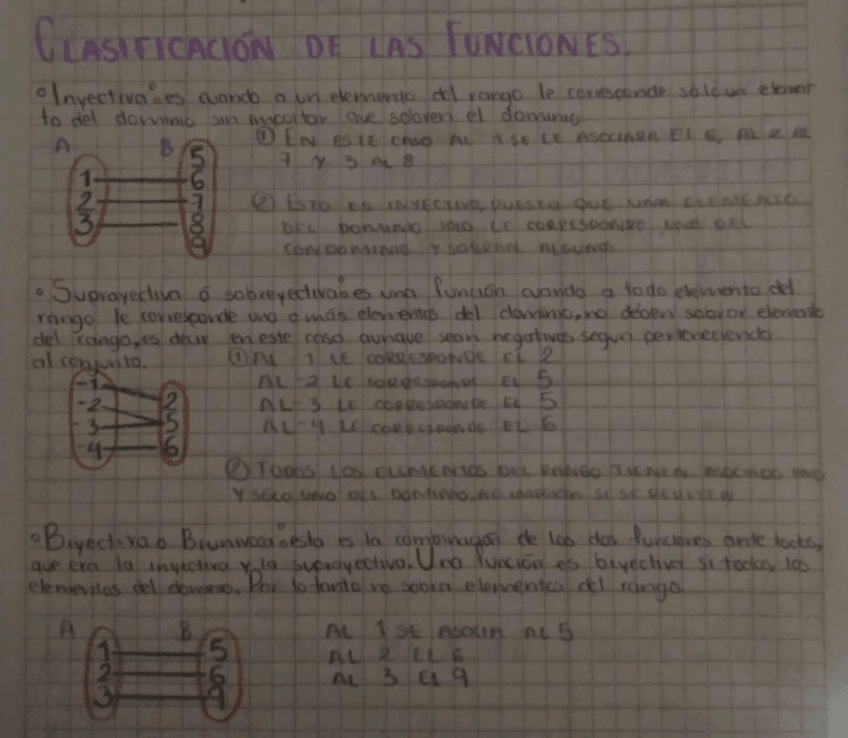 CLASIFICACIÓN DE LAS FUNCIONES.
° Inyectiva: es cuando a un elemento del rango le corresponde solo un elemen
to del dominio sin importar que sobren el dominio
A B
① EN ESTE CASO AL 1 SE LE ASOCIARA EL 6, AL 2 AL
7 Y 3 AL 8
5
1 6
2 7
3 8
9
② ESTO ES INYECTIVO, PUESTO QUE UNA ELEMENTO
DEL DOMINIO SOLO LE CORRESPONDE UNO DEL
CONDOMINIO Y SOBRAN ALGUNOS
° Suprayectiva ó sobreyectiva: es una función cuando a todo elemento del
rango le corresponde uno o más elementos del dominio, no deben sobrar elemento
del rango, es decir en este caso aunque sean negativos segun perteneciendo
al conjunto.
① AL -1 LE CORRESPONDE EL 2
AL -2 LE CORRESPONDE EL 5
AL -3 LE CORRESPONDE EL 5
AL -4 LE CORRESPONDE EL 6
-1
-2 2
-3 5
-4 6
② TODOS LOS ELEMENTOS DEL RANGO TIENEN ASOCIADO UNO
Y SOLO UNO DEL DOMINIO, NO SI SE REPITEN
° Biyectiva o Biunivoca: esta es la combinación de las dos funciones ante todas,
que era la inyectiva y la suprayectiva. Una función es biyectiva si todos los
elementos del dominio. Por lo tanto no sobra elementos del rango
A B
1 5
2 6
3 9
AL 1 SE ASOCIA AL 5
AL 2 EL 6
AL 3 EL 9